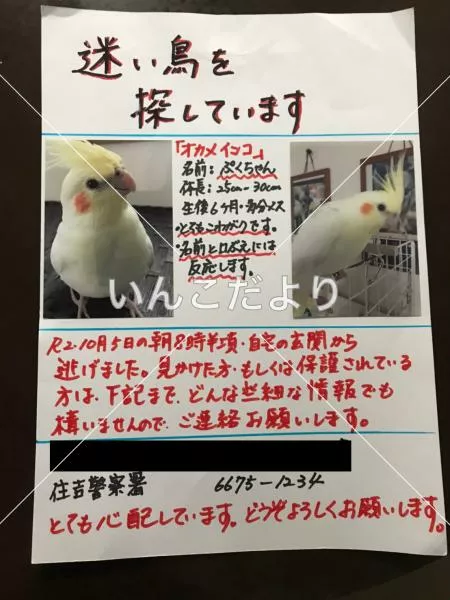 迷い鳥を
探しています
「オカメインコ」
名前：ぷくちゃん
体長：25cm〜30cm
生後6ヶ月・多分メス
・とてもこわがりです。
・名前と口ぶえには
反応します。
いんこだより
R2.10月5日の朝8時半頃・自宅の玄関から
逃げました。見かけた方・もしくは保護されている
方は、下記まで、どんな些細な情報でも
構いませんので、ご連絡お願いします。
住吉警察署 6675-1234
とても心配しています。どうぞよろしくお願いします。